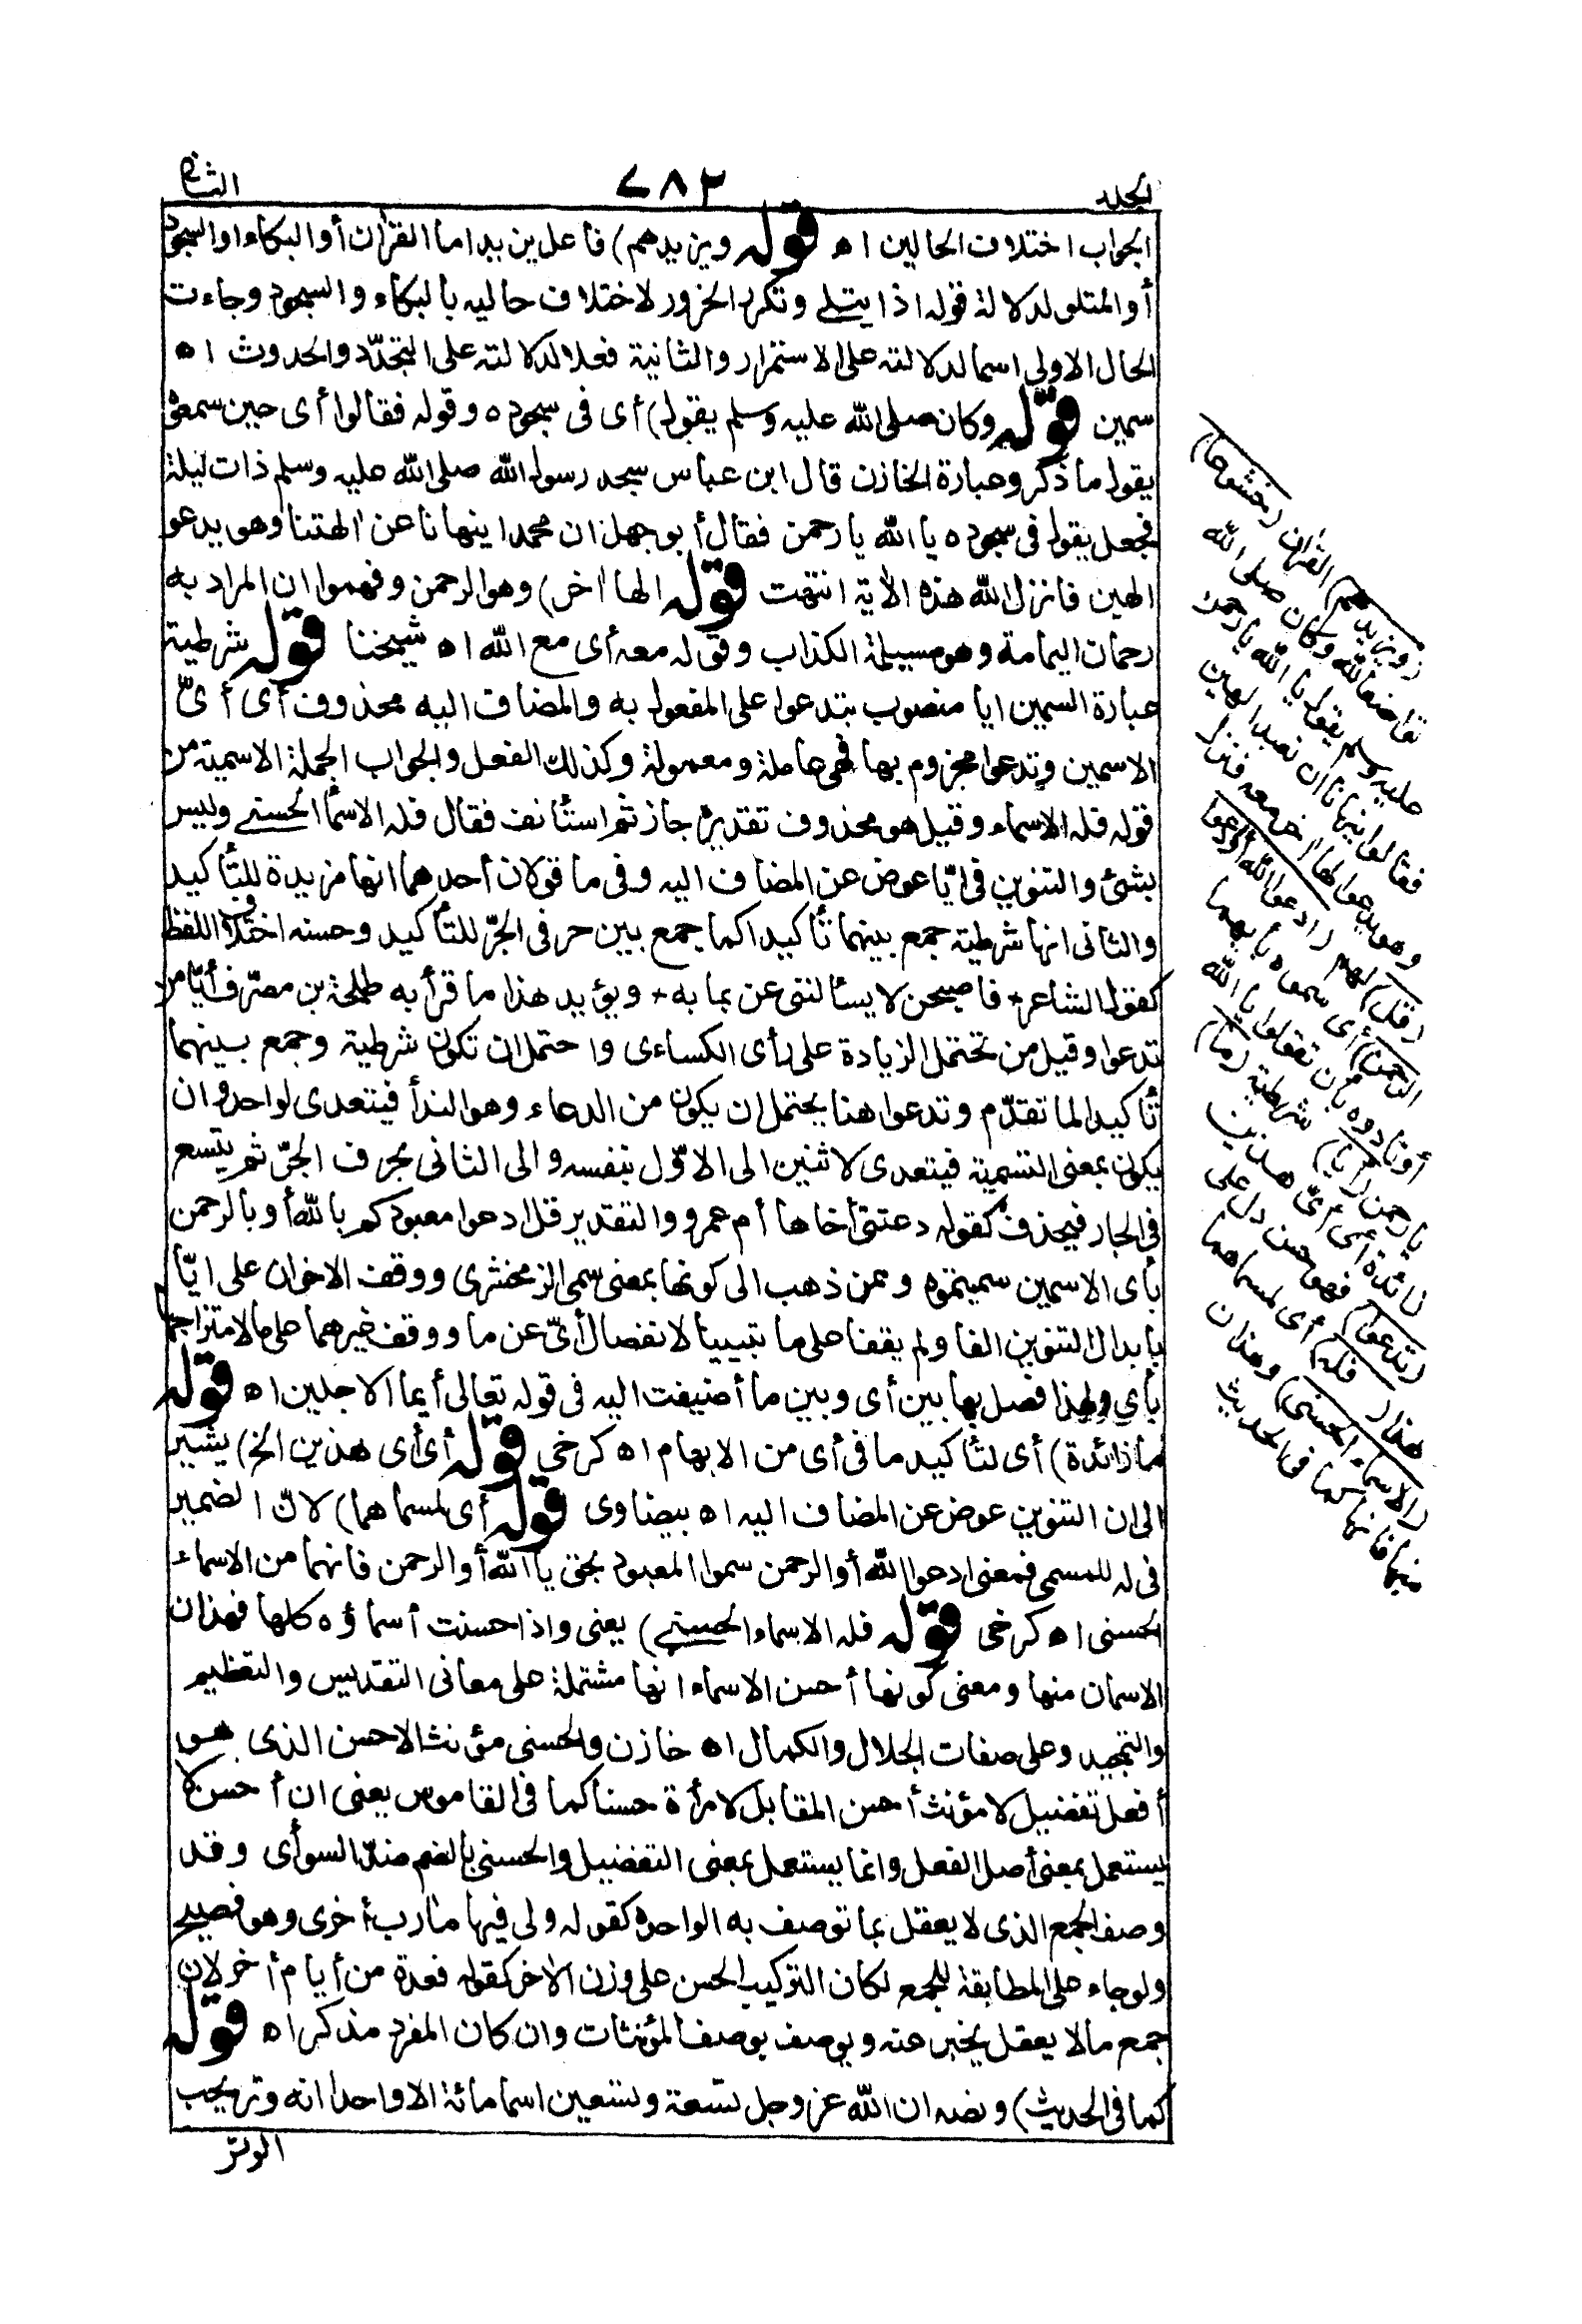 المجلد
٦٨٢
الثانى
الجواب اختلاف الحالين اه قوله ويزيدهم) فاعل يزيد اما القرآن أو البكاء او السجود
أو المتلو لدلالة قوله اذا يتلى وتكرر الخرور لاختلاف حاليه بالبكاء والسجود وجاءت
الحال الاولى اسما لدلالته على الاستمرار والثانية فعلا لدلالته على التجدّد والحدوث اه
سمين قوله وكان صلى الله عليه وسلم يقول) أى فى سجوده وقوله فقالوا أى حين سمعوه
يقول ما ذكر وعبارة الخازن قال ابن عباس سجد رسول الله صلى الله عليه وسلم ذات ليلة
فجعل يقول فى سجوده يا الله يا رحمن فقال أبو جهل ان محمدا ينهانا عن آلهتنا وهو يدعو
الهين فانزل الله هذه الآية انتهت قوله الها آخر) وهو الرحمن وفهموا ان المراد به
رحمان اليمامة وهو مسيلمة الكذاب وقوله معه أى مع الله اه شيخنا قوله شرطية
عبارة السمين ايا منصوب بتدعوا على المفعول به والمضاف اليه محذوف أى أىّ
الاسمين وتدعوا مجزوم بها فهى عاملة ومعمولة وكذلك الفعل والجواب الجملة الاسمية من
قوله فله الاسماء وقيل هو محذوف تقديره جاز ثم استأنف فقال فله الاسماء الحسنى وليس
بشئ والتنوين فى ايّا عوض عن المضاف اليه وفى ما قولان أحدهما انها مزيدة للتأكيد
والثانى انها شرطية جمع بينهما تأكيدا كما جمع بين حرفى الجرّ للتأكيد وحسنه اختلاف اللفظ
كقول الشاعر + فاصبحن لا يسألننى عن بما به + ويؤيد هذا ما قرأ به طلحة بن مصرّف أيّا من
تدعوا وقيل من تحتمل الزيادة على رأى الكساءى واحتمل ان تكون شرطية وجمع بينهما
تأكيدا لما تقدّم وتدعوا هنا يحتمل ان يكون من الدعاء وهو الندأ فيتعدى لواحد وان
يكون بمعنى التسمية فيتعدى لاثنين الى الاوّل بنفسه والى الثانى بحرف الجرّ ثم يتسع
فى الجار فيحذف كقوله دعتنى أخاها أم عمرو والتقدير قل ادعوا معبودكم بالله أو بالرحمن
بأى الاسمين سميتموه وممن ذهب الى كونها بمعنى سمى الزمخشرى ووقف الاخوان على ايّا
بابدال التنوين الفا ولم يقفا على ما تبيينا لانفصال أىّ عن ما ووقف غيرهما على ما لامتزاجها
بأى ولهذا فصل بها بين أى وبين ما أضيفت اليه فى قوله تعالى أيما الاجلين اه قوله
ما زائدة) أى لتأكيد ما فى أى من الابهام اه كرخى قوله أى أى هذين الخ) يشير
الى ان التنوين عوض عن المضاف اليه اه بيضاوى قوله أى لمسماهما) لانّ الضمير
فى له للمسمى فمعنى ادعوا الله أو الرحمن سموا المعبود بحق يا الله أو الرحمن فانهما من الاسماء
الحسنى اه كرخى قوله فله الاسماء الحسنى) يعنى واذا حسنت أسماؤه كلها فهذان
الاسمان منها ومعنى كونها أحسن الاسماء انها مشتملة على معانى التقديس والتعظيم
والتمجيد وعلى صفات الجلال والكمال اه خازن والحسنى مؤنث الاحسن الذى هو
أفعل تفضيل لا مؤنث أحسن المقابل لامرأة حسنا كما فى القاموس يعنى ان أحسن لا
يستعمل بمعنى أصل الفعل وانما يستعمل بمعنى التفضيل والحسنى بالضم ضدّ السوأى وقد
وصف الجمع الذى لا يعقل بما توصف به الواحدة كقوله ولى فيها مآرب أخرى وهو فصيح
ولو جاء على المطابقة للجمع لكان التركيب الحسن على وزن الآخر كقوله فعدة من أيام أخر لان
جمع ما لا يعقل يخبر عنه ويوصف بوصف المؤنثات وان كان المفرد مذكرا اه قوله
كما فى الحديث) ونصه ان الله عز وجل تسعة وتسعين اسما مائة الا واحدا انه وتر يحب
الوتر
(ويزيدهم) القرآن (خشوعا)
تواضعا لله وكان صلى الله
عليه وسلم يقول يا الله يا رحمن
فقالوا ينهانا أن نعبد الهين
وهو يدعو الها آخر معه فنزل
(قل) لهم (ادعوا الله أو ادعوا
الرحمن) أى سموه بأيهما
أو نادوه بأن تقولوا يا الله
يا رحمن (أيا) شرطية (ما)
زائدة أى أىّ هذين
(تدعوا) فهو حسن دل على
هذا (فله) أى لمسماهما
(الاسماء الحسنى) وهذان
منها فانها كما فى الحديث